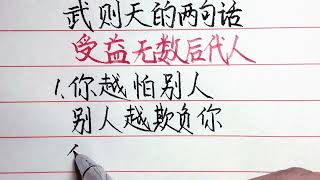 武则天的两句话
受益无数后代人
1.你越怕别人
别人越欺负你